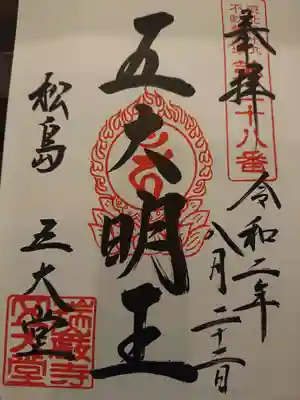 奉拝
十八番
令和二年
八月二十二日
五大明王
松島 五大堂
瑞巌寺
五大堂